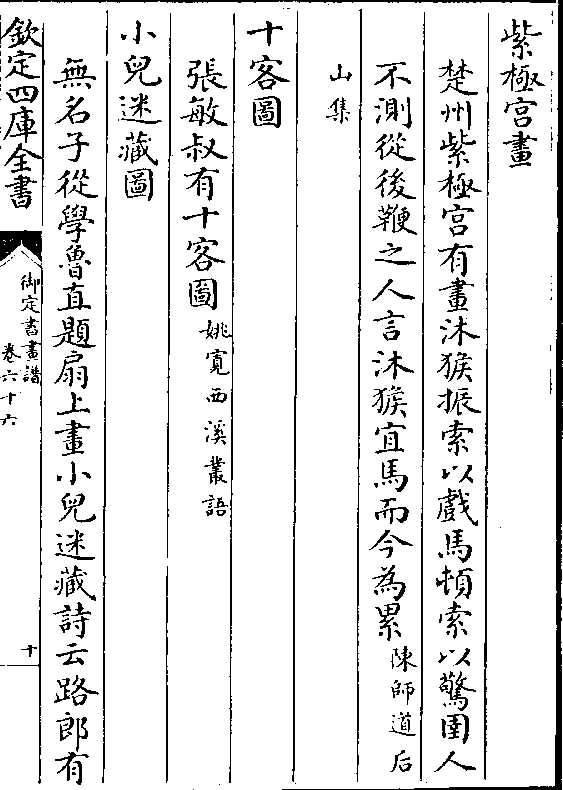 紫極宫畫
楚州紫極宫有畫沐猴振索以戲馬頓索以驚圉人
不測從後鞭之人言沐猴宜馬而今為累陳師道后
山集
十客圖
張敏叔有十客圖姚寛西溪叢語
小兒迷藏圖
無名子從學魯直題扇上畫小兒迷藏詩云路郎有
欽定四庫全書
御定書畫譜
卷六十六
十